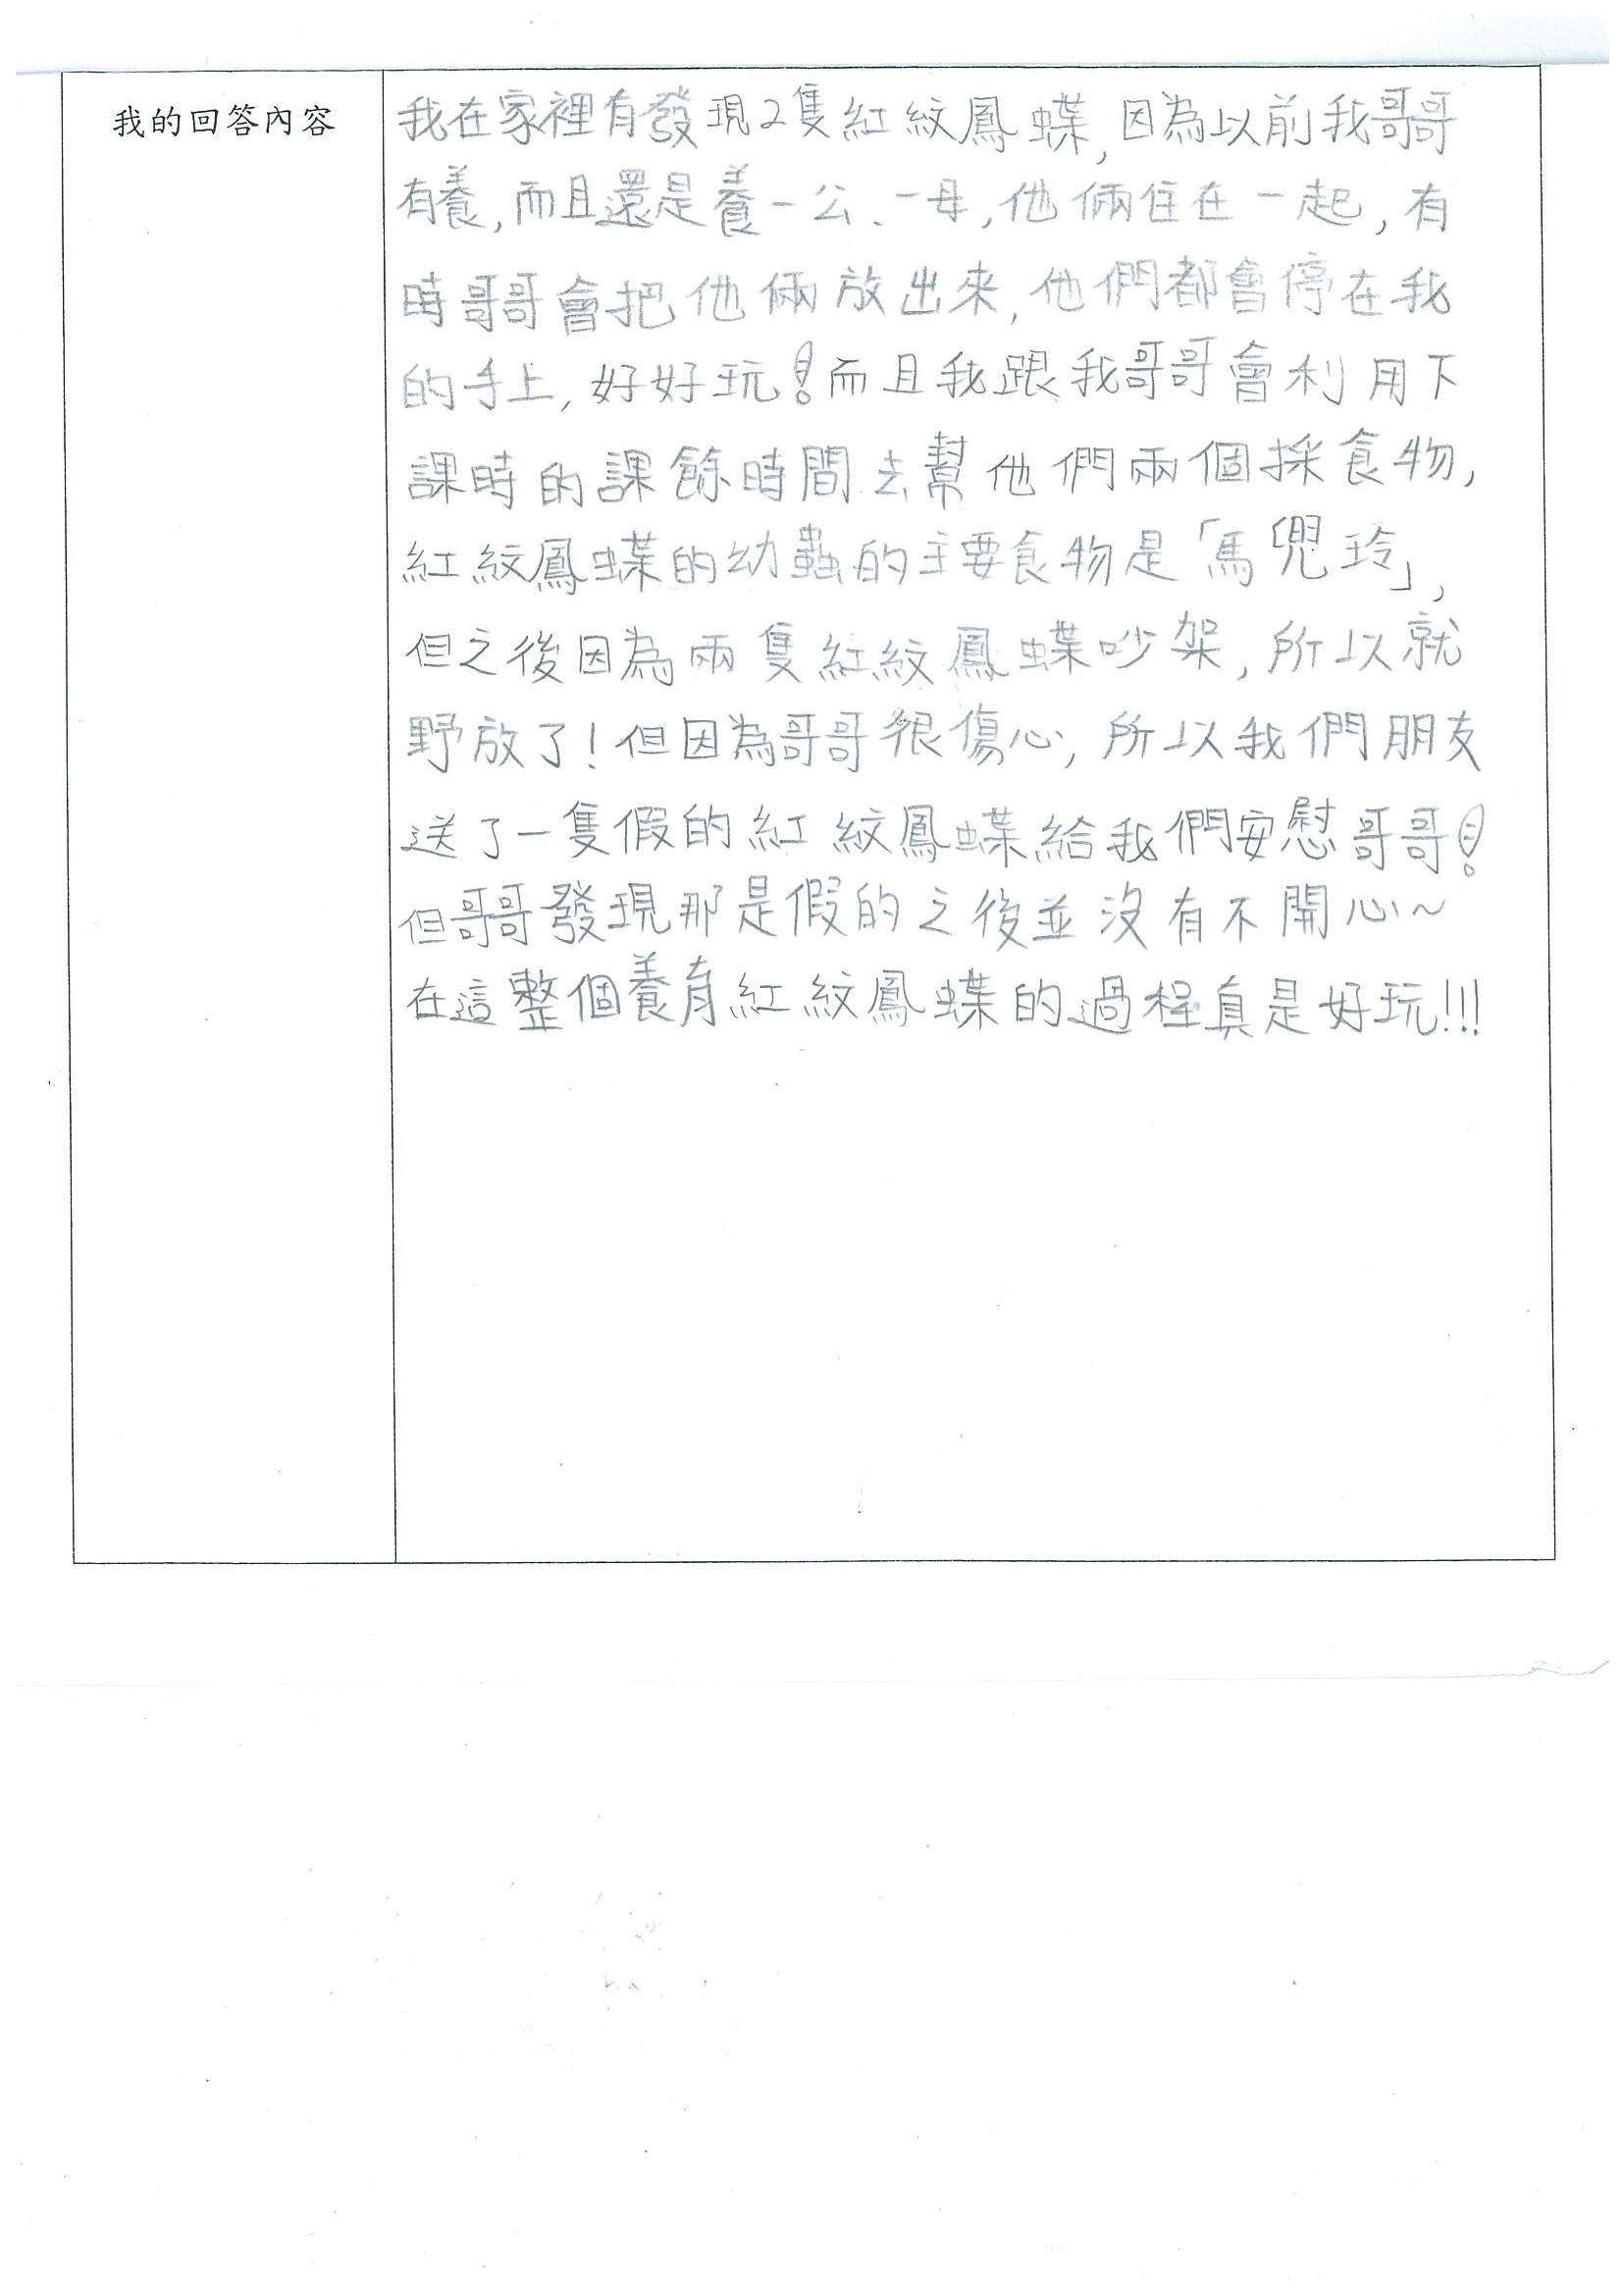 我的回答內容
我在家裡有發現2隻紅紋鳳蝶,因為以前我哥哥
有養,而且還是養一公、一母,他倆住在一起,有
時哥哥會把他倆放出來,他們都會停在我
的手上,好好玩!而且我跟我哥哥會利用下
課時的課餘時間去幫他們兩個採食物,
紅紋鳳蝶的幼蟲的主要食物是「馬兜玲」,
但之後因為兩隻紅紋鳳蝶吵架,所以就
野放了!但因為哥哥很傷心,所以我們朋友
送了一隻假的紅紋鳳蝶給我們安慰哥哥!
但哥哥發現那是假的之後並沒有不開心~
在這整個養育紅紋鳳蝶的過程真是好玩!!!